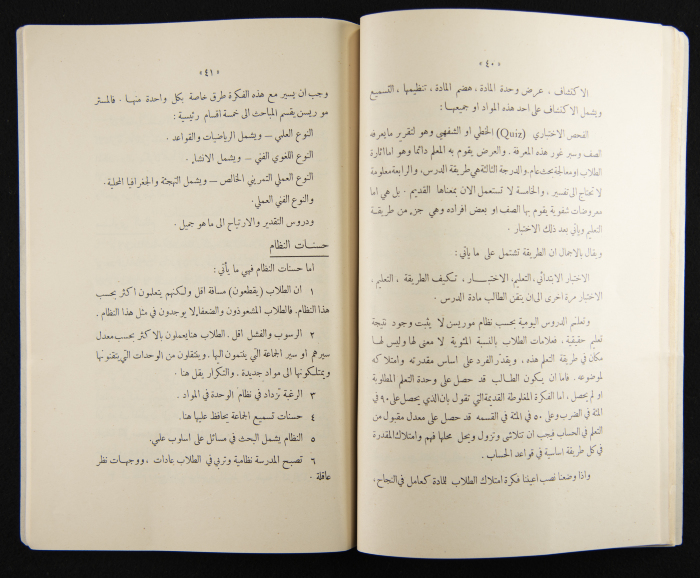 « ٤٠ »
الاكتشاف، عرض وحدة المادة، هضم المادة، تنظيمها، التسميع
ويشمل الاكتشاف على احد هذه المواد او جميعها:
الفحص الاختباري (Quiz) الخطي او الشفهي وهو لتقرير ما يعرفه
الصف وسبر غور هذه المعرفة. والعرض يقوم به المعلم دائما وهو اما اثارة
الطلاب او معالجة بحث عام. والدرجة الثالثة هي طريقة الدرس، والرابعة معلومة
لا تحتاج الى تفسير، والخامسة لا تستعمل الان بمعناها القديم. بل هي اما
معروضات شفوية يقوم بها الصف او بعض افراده وهي جزء من طريقة
التعليم ويأتي بعد ذلك الاختبار.
ويقال بالاجمال ان الطريقة تشتمل على ما يأتي:
الاختبار الابتدائي، التعليم، الاختبار، تكييف الطريقة، التعليم،
الاختبار مرة اخرى الى ان يتقن الطالب مادة الدرس.
وتعليم الدروس اليومية بحسب نظام موريسن لا يثبت وجود نتيجة
تعليم حقيقية. فعلامات الطلاب بالنسبة المئوية لا معنى لها وليس لها
مكان في طريقة التعلم هذه. ويقدر الفرد على اساس مقدرته وامتلاكه
لموضوعه. فاما ان يكون الطالب قد حصل على وحدة التعلم المطلوبة
او لم يحصل، اما الفكرة المغلوطة القديمة التي تقول بان الذي يحصل على ٩٠ في
المئة في الضرب وعلى ٥٠ في المئة في القسمة قد حصل على معدل مقبول من
التعلم في الحساب فيجب ان تتلاشى وتزول ويحل محلها فهم وامتلاك المقدرة
في كل طريقة اساسية في قواعد الحساب.
واذا وضعنا نصب اعيننا فكرة امتلاك الطلاب للمادة كعامل في النجاح،
« ٤١ »
وجب ان يسير مع هذه الفكرة طرق خاصة بكل واحدة منها. فالمستر
موريسن يقسم المباحث الى خمسة اقسام رئيسية:
النوع العلمي ــ ويشمل الرياضيات والقواعد.
النوع اللغوي الفني ــ ويشمل الانشاء.
النوع العملي التمريني الخالص ــ ويشمل التهجئة والجغرافيا المحلية.
والنوع الفني العملي.
ودروس التقدير والارتياح الى ما هو جميل.
حسنات النظام
اما حسنات النظام فهي ما يأتي:
١ ان الطلاب (يقطعون) مسافة اقل ولكنهم يتعلمون اكثر بحسب
هذا النظام. فالطلاب المشعوذون والضعفاء لا يوجدون في مثل هذا النظام.
٢ الرسوب والفشل اقل. الطلاب هنا يعملون بالاكثر بحسب معدل
سيرهم او سير الجماعة التي ينتمون اليها، وينتقلون من الوحدات التي يتقنونها
ويمتلكونها الى مواد جديدة. والتكرار يقل هنا.
٣ الرغبة تزداد في نظام الوحدة في المواد.
٤ حسنات تسميع الجماعة يحافظ عليها هنا.
٥ النظام يشمل البحث في مسائل على اسلوب علمي.
٦ تصبح المدرسة نظامية وتربي في الطلاب عادات، ووجهات نظر
عاقلة.